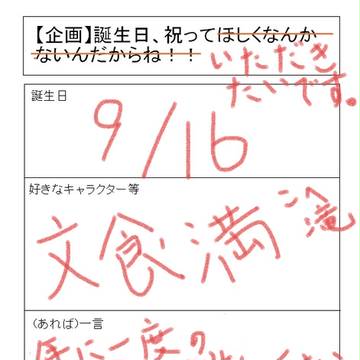 【企画】誕生日、祝ってほしくなんか
ないんだからね！！
いただき
たいです。
誕生日
9/16
好きなキャラクター等
文食満
こへ滝
（あれば）一言
年に一度の